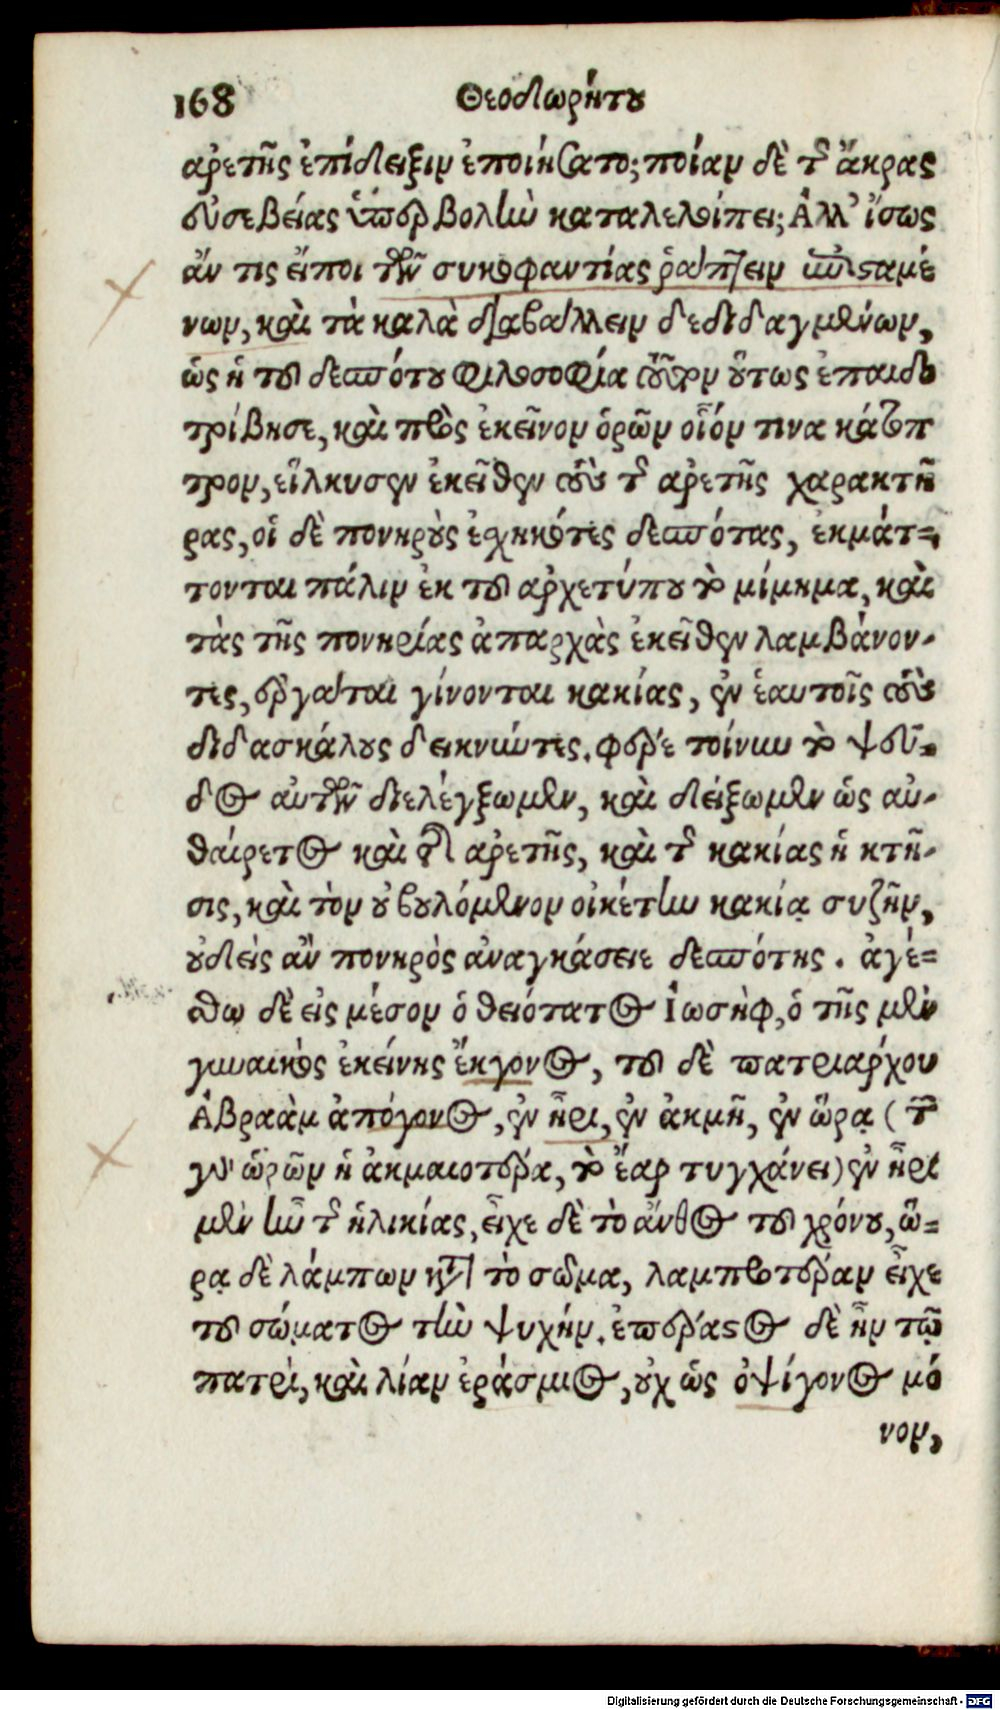 168 Θεοδωρήτου
ἀρετῆς ἐπίδειξιν ἐποιήσατο; ποίαν δὲ τῆς ἄκρας
εὐσεβείας ὑπερβολὴν καταλελοίπει; Ἀλλ' ἴσως
ἄν τις εἴποι τῶν συκοφαντίας ῥάπτειν ἐπισταμέ
νων, καὶ τὰ καλὰ διαβάλλειν δεδιδαγμένων,
ὡς ἡ τοῦ δεσπότου φιλοσοφία τοῦτον οὕτως ἐπαιδο
τρίβησε, καὶ πρὸς ἐκεῖνον ὁρῶν οἷόν τινα κάτοπ
τρον, εἵλκυσεν ἐκεῖθεν τοὺς τῆς ἀρετῆς χαρακτῆ
ρας, οἱ δὲ πονηροὺς ἐσχηκότες δεσπότας, ἐκμάτ-
τονται πάλιν ἐκ τοῦ ἀρχετύπου τὸ μίμημα, καὶ
τὰς τῆς πονηρίας ἀπαρχὰς ἐκεῖθεν λαμβάνον-
τες, ἐργάται γίνονται κακίας, ἐν ἑαυτοῖς τοὺς
διδασκάλους δεικνύντες. φέρε τοίνυν τὸ ψεῦ-
δος αὐτῶν διελέγξωμεν, καὶ δείξωμεν ὡς αὐ-
θαίρετος καὶ τῆς ἀρετῆς, καὶ τῆς κακίας ἡ κτῆ-
σις, καὶ τὸν οὐ βουλόμενον οἰκέτην κακίᾳ συζῆν,
οὐδεὶς ἂν πονηρὸς ἀναγκάσειε δεσπότης. ἀγέ-
σθω δὲ εἰς μέσον ὁ θειότατος Ἰωσὴφ, ὁ τῆς μὲν
γυναικὸς ἐκείνης ἔκγονος, τοῦ δὲ πατριάρχου
Ἀβραὰμ ἀπόγονος, ἐν ἦρι, ἐν ἀκμῇ, ἐν ὥρᾳ (τῶν
γὰρ ὡρῶν ἡ ἀκμαιοτέρα, τὸ ἔαρ τυγχάνει) ἐν ἦρι
μὲν ἦν τῆς ἡλικίας, εἶχε δὲ τὸ ἄνθος τοῦ χρόνου, ὥ-
ρᾳ δὲ λάμπων κατὰ τὸ σῶμα, λαμπροτέραν εἶχε
τοῦ σώματος τὴν ψυχήν. ἐπέραστος δὲ ἦν τῷ
πατρὶ, καὶ λίαν ἐράσμιος, οὐχ ὡς ὀψίγονος μό
νον,
Digitalisierung gefördert durch die Deutsche Forschungsgemeinschaft - DFG